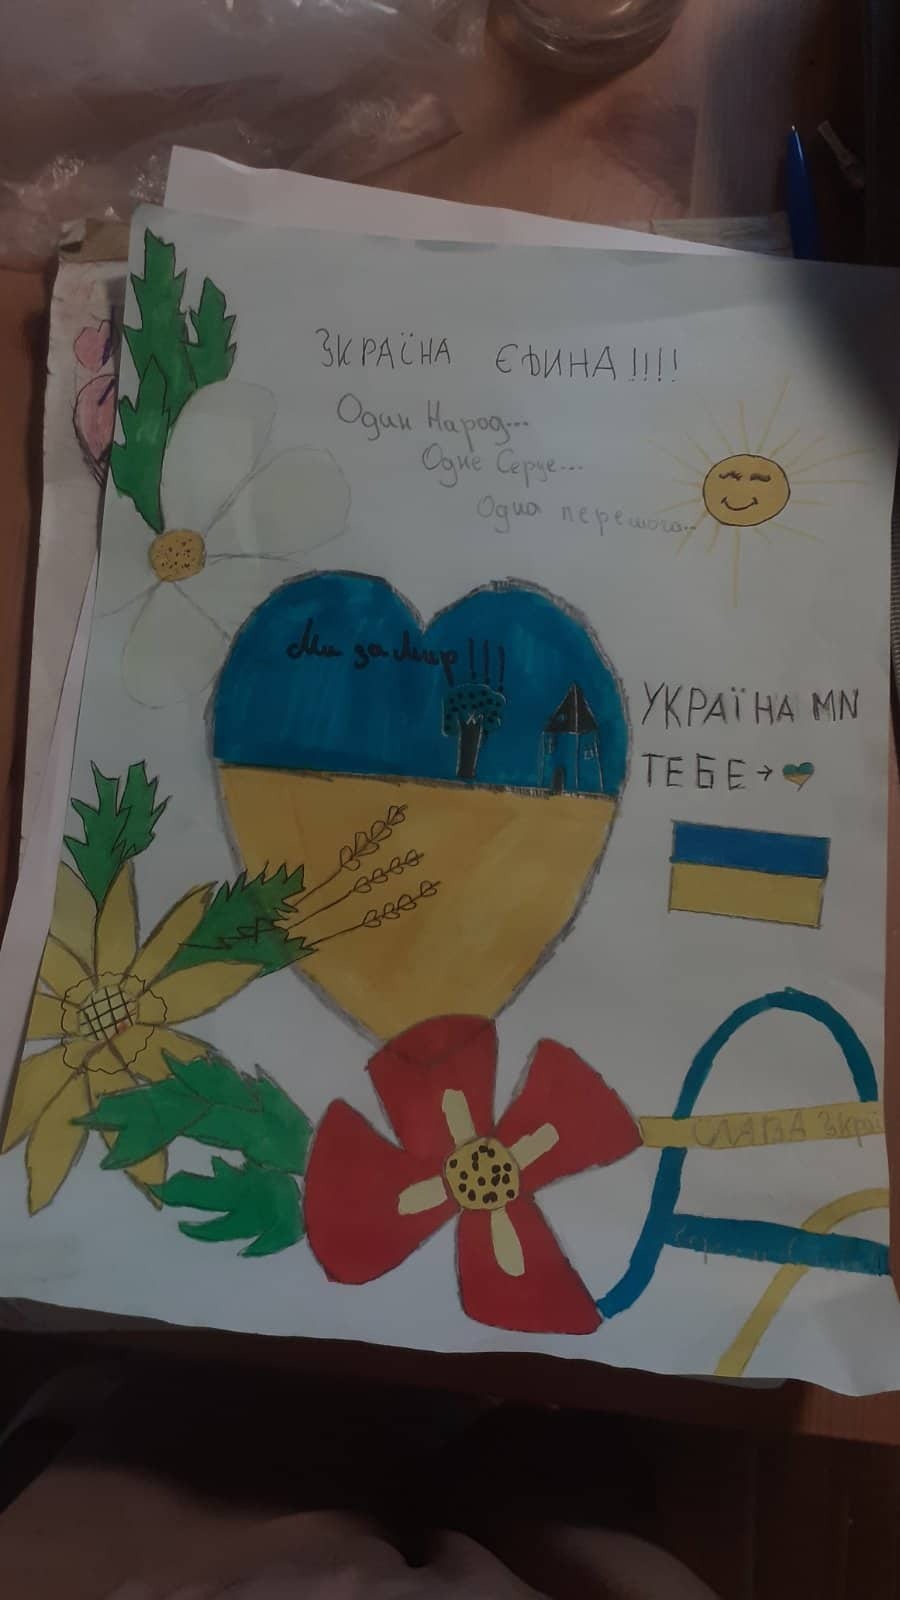 ЗКРАЇНА ЄДИНА!!!!
Один Народ...
Одне Серце...
Одна перемога...
Ми за Мир!!!
УКРАЇНА МИ
ТЕБЕ→
СЛАВА Украї